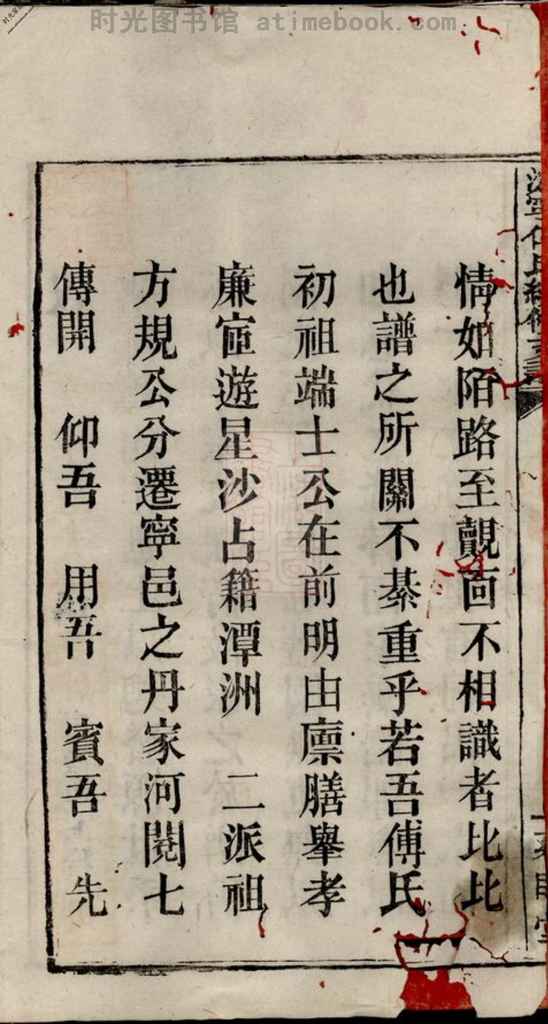 时光图书馆 atimebook.com
情如陌路至覿面不相識者比比
也譜之所關不綦重乎若吾傅氏
初祖端士公在前明由廪膳舉孝
廉宦遊星沙占籍潭洲 二派祖
方規公分遷寧邑之丹家河閱七
傳開 仰吾 用吾 賓吾 先